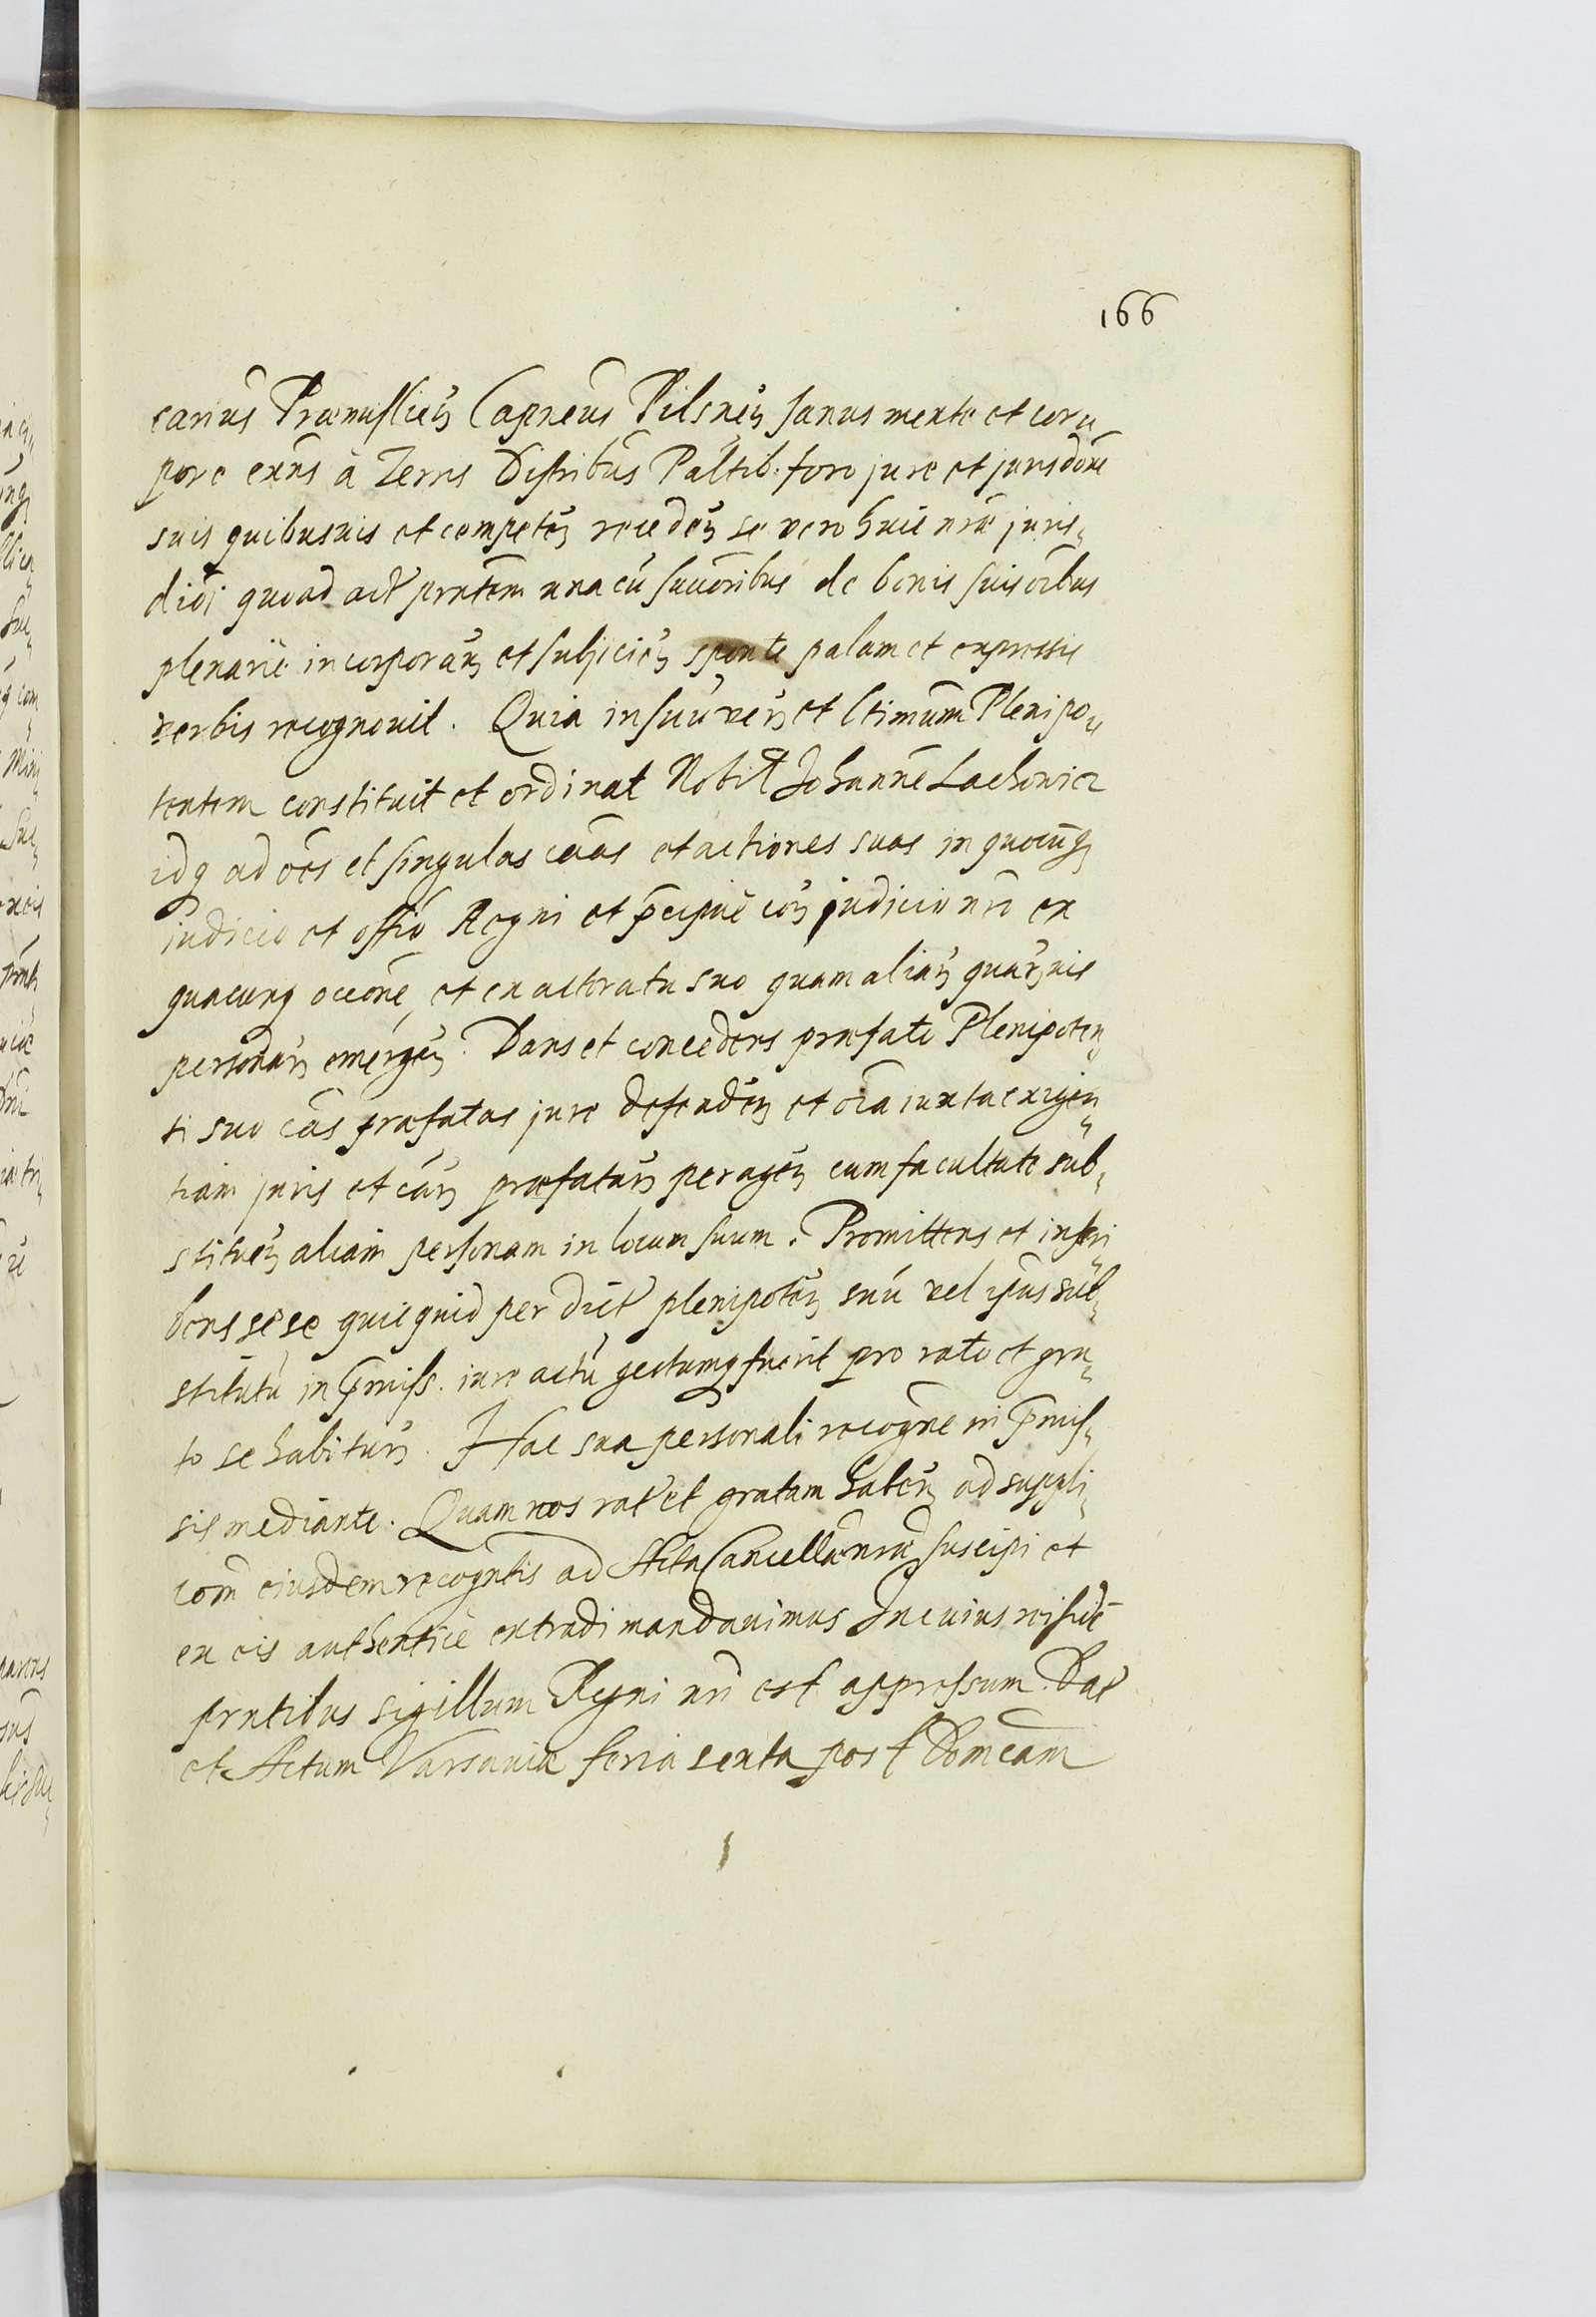 166
carius Præmisliēn Capneūs Pilsnēn sanus mente et cor„
pore exñs à Terris Distribūs Paltib. foro jure et jurisdōne
suis quibusuis et competēn recedēn se vero huic nræ juris„
dictōi quoad act prntem una cū succōribus de bonis suis oībus
plenarie incorporān et subjiciēn sponte palam et expressis
verbis recognouit. Quia in suū verū et ltimum Plenipo„
tentem constituit et ordinat Nobil Johannē Lachowicz
idq ad oēs et singulas cāas et actiones suas in quocūq
iudicio et offio Regni et p̄cipuè corā judicio nro ex
quacunq occōne, et ex actoratu suo quam aliarū quarūuis
personarū emergēn. Dans et concedens præfato Plenipoten„
ti suo cās præfatas jure defendēn et oīa iuxta exigen„
tiam juris et cārū præfatarū peragēn cum facultate sub„
stituēn aliam personam in locum suum. Promittens et inscri„
bens sese quicquid per dict plenipotēn suū vel ipsius sub„
stitutū in p̄miss. iure actū gestumq fuerit pro rato et gra„
to se habiturū. Hac sua personali recogne in p̄mis„
sis mediante. Quam nos rat et gratam habēn ad suppli„
cōm eiusdem recogntis ad Acta Cancellæ nræ suscipi et
ex eis authenticè extradi mandauimus In cuius rei fidē
prntibus sigillum Regni nri est appressum. Dat
et Actum Varsauiæ feria sexta post Domcam